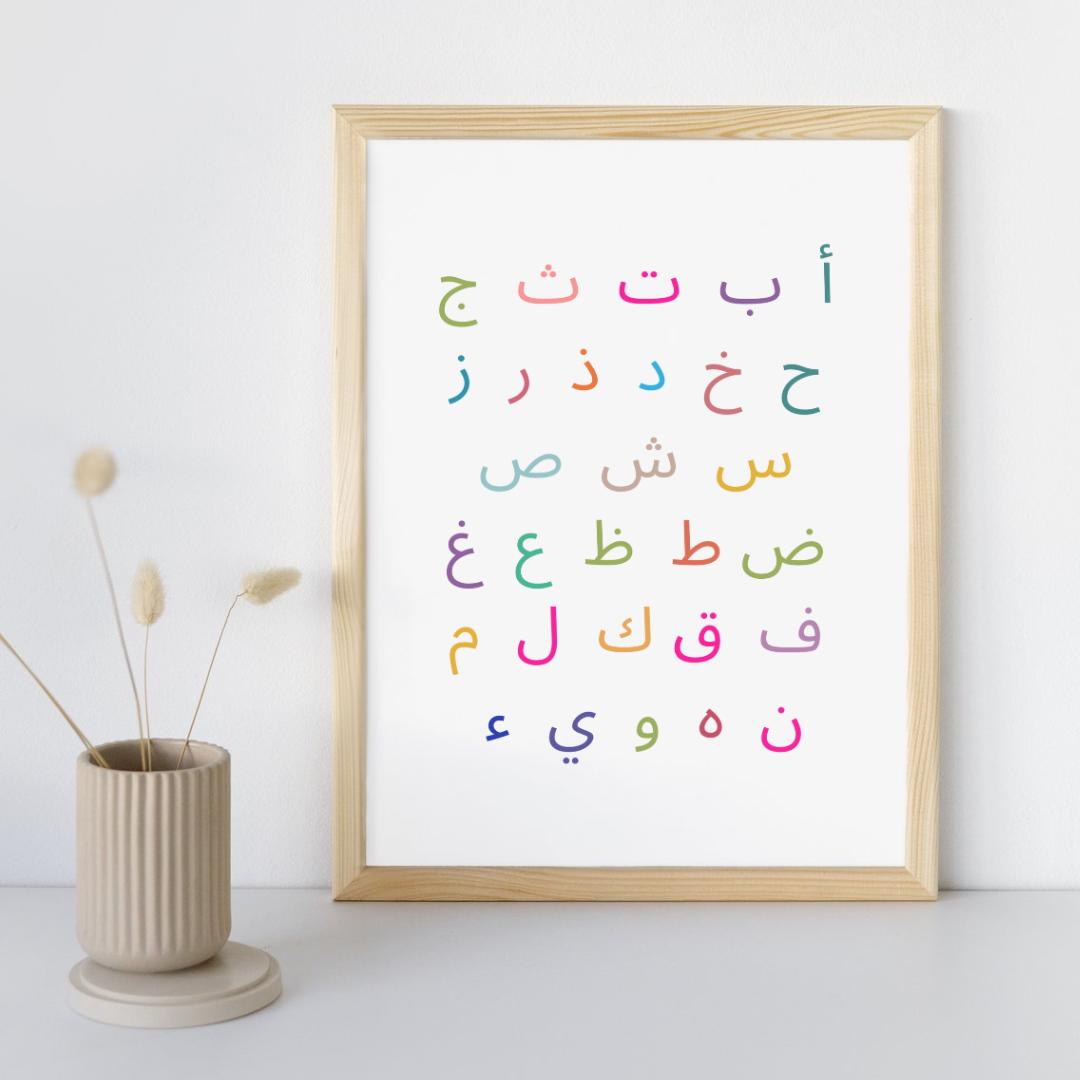 أ ب ت ث ج
ح خ د ذ ر ز
س ش ص
ض ط ظ ع غ
ف ق ك ل م
ن ه و ي ء